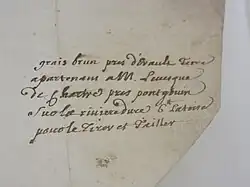 grais brun pres d'Evaule terre
apartenant a M. Levesque
de Chartre pres pontgouin
sur la riviere dure
pour le tirer et tailler